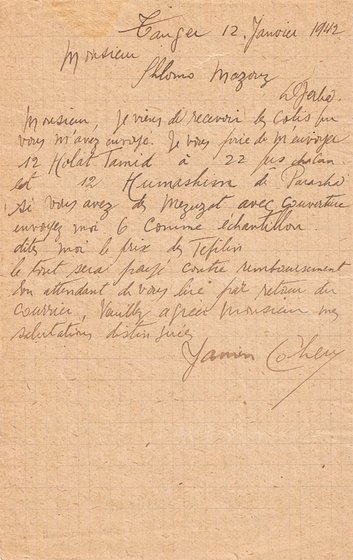 Tanger 12 Janvier 1942
Monsieur
Shlomo Mazouz
Djerba
Monsieur, Je viens de recevoir les colis que
vous m'avez envoyé. Je vous prie de m'envoyer
12 Holat Tamid à 22 frs chacun
et 12 Humashim de Parasha
Si vous avez des Mezuzot avec couverture
envoyez moi 6 comme échantillon
dites moi le prix des Tefilin
le tout sera payé contre remboursement
En attendant de vous lire par retour du
courrier, Veuillez agréer Monsieur mes
salutations distinguées
Cohen